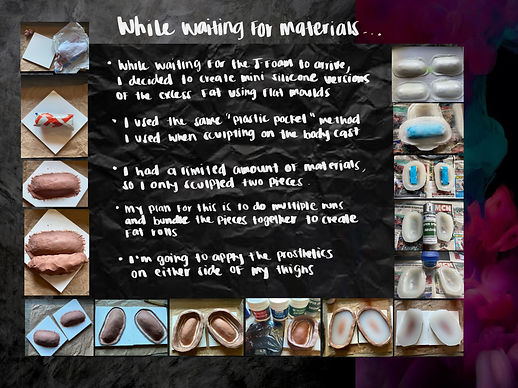 While waiting for materials...
• While waiting for the J-Foam to arrive,
I decided to create mini silicone versions
of the excess fat using flat moulds
• I used the same "plastic pocket" method
I used when sculpting on the body cast
• I had a limited amount of materials,
so I only sculpted two pieces.
• My plan for this is to do multiple runs
and bundle the pieces together to create
fat rolls
• I'm going to apply the prosthetics
on either side of my thighs